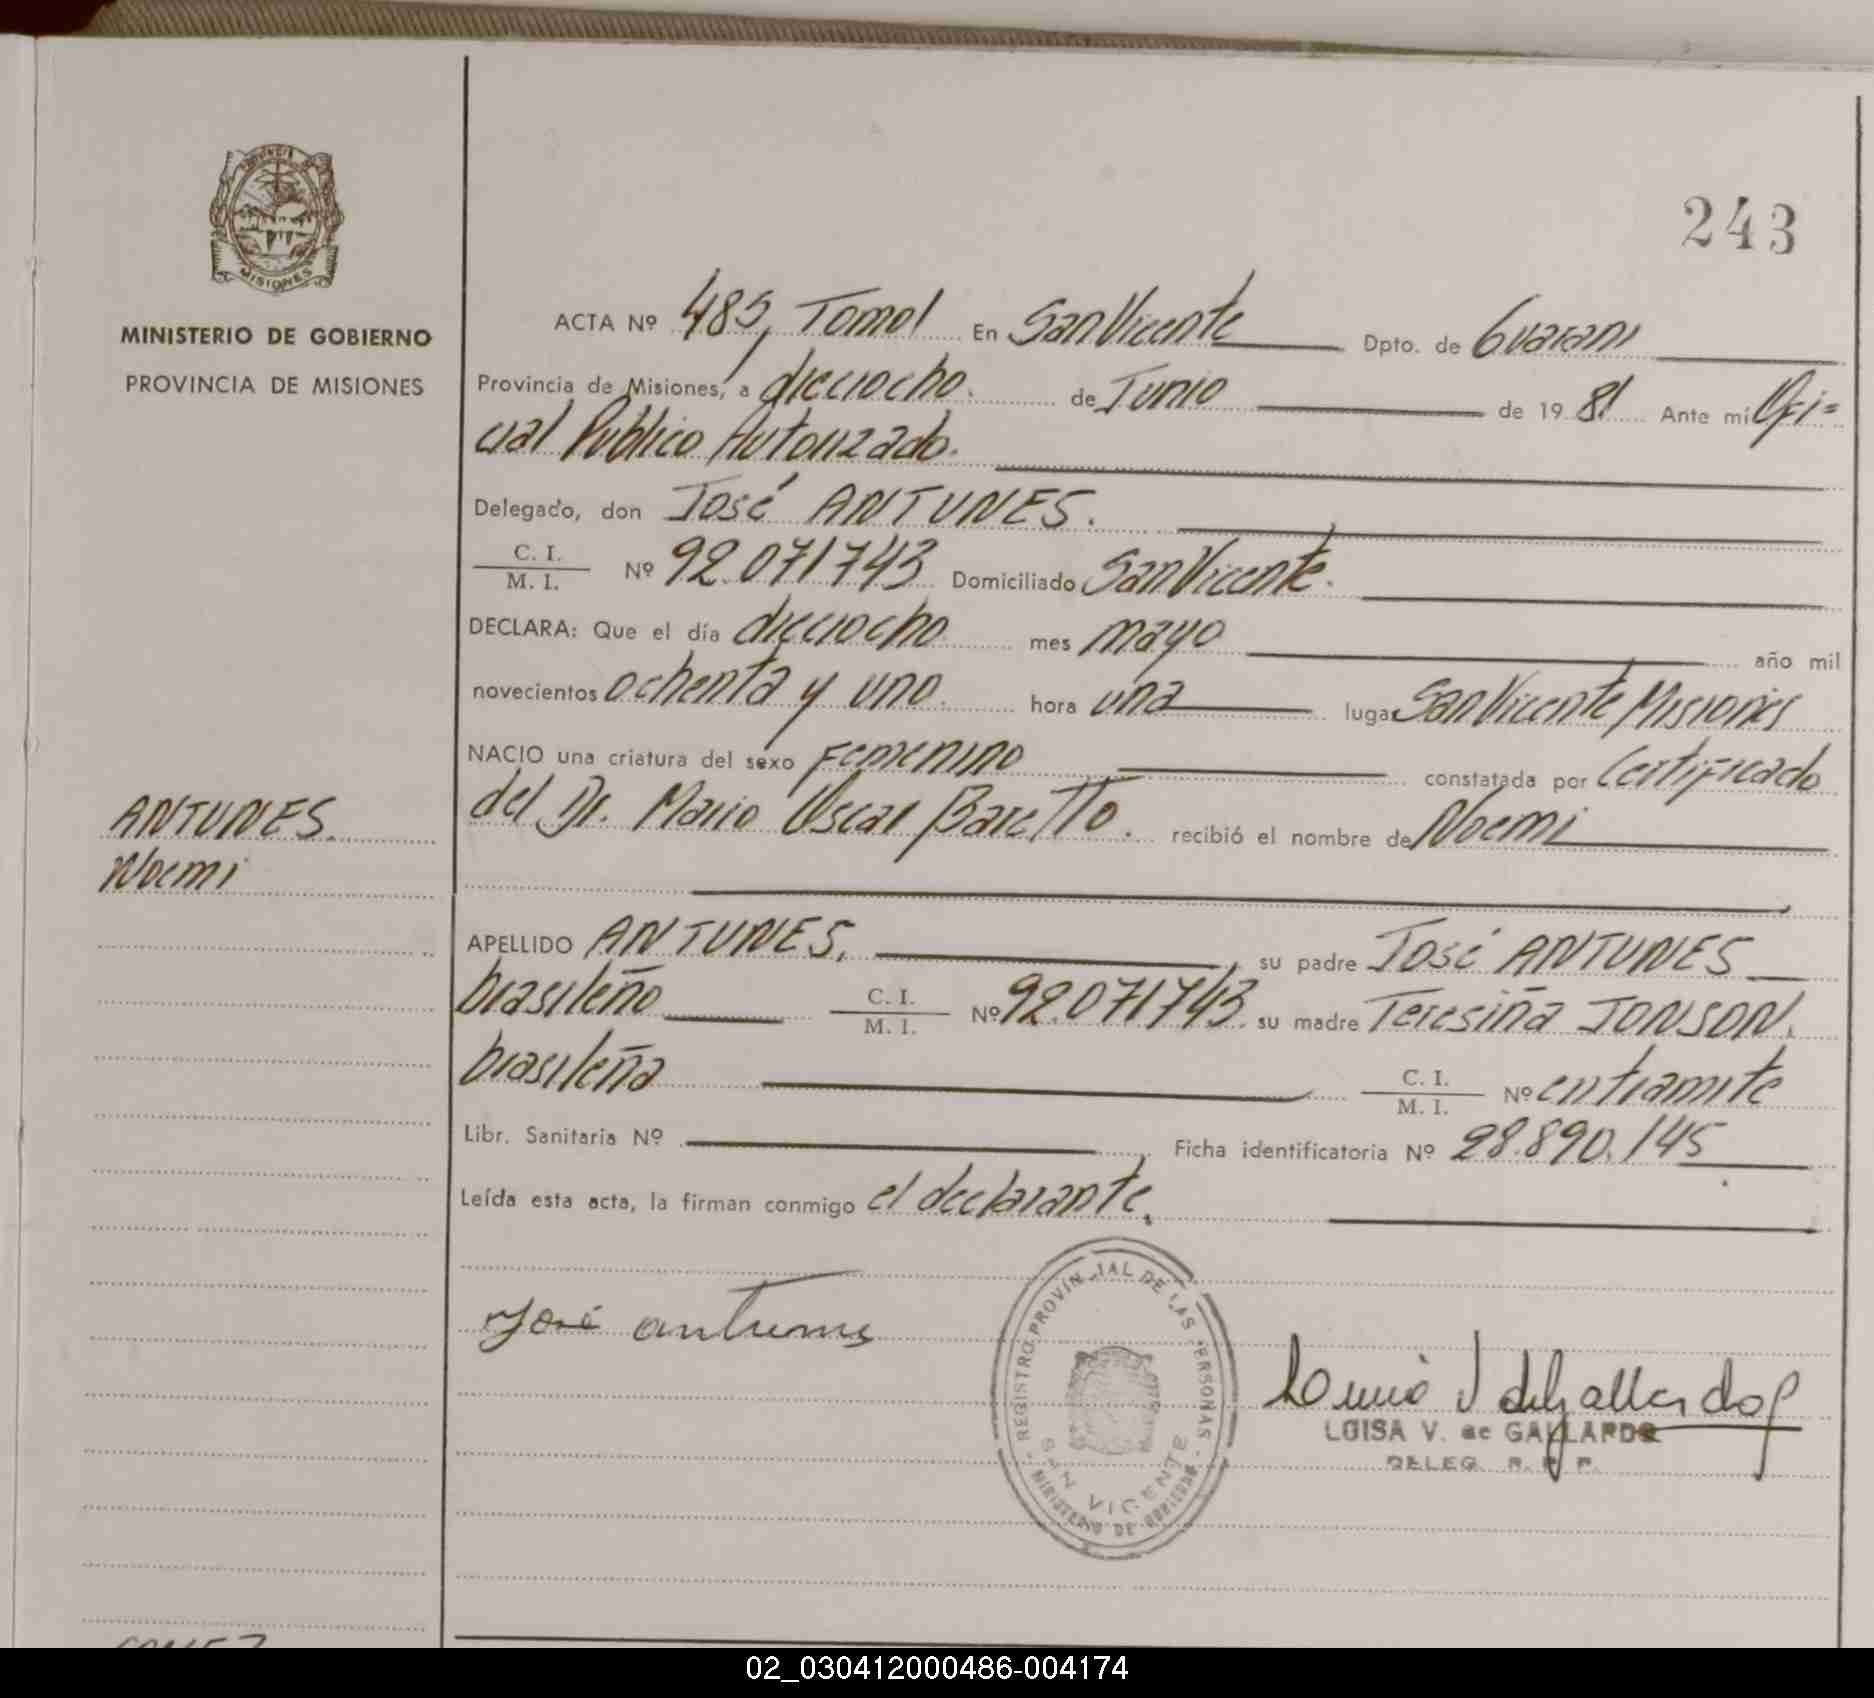 243
PROVINCIA DE
MISIONES
MINISTERIO DE GOBIERNO
PROVINCIA DE MISIONES
ANTUNES.
Noemi
ACTA Nº 485, Tomo I En San Vicente Dpto. de Guarani
Provincia de Misiones, a dieciocho. de Junio de 19 81 Ante mi Ofi=
cial Publico Autorizado.
Delegado, don José ANTUNES.
C. I.
M. I. Nº 92.071743 Domiciliado San Vicente.
DECLARA: Que el día dieciocho mes mayo año mil
novecientos ochenta y uno. hora una lugar San Vicente Misiones
NACIO una criatura del sexo Femenino constatada por Certificado
del Dr. Mario Oscar Baretto. recibió el nombre de Noemi
APELLIDO ANTUNES, su padre José ANTUNES
brasileño C. I.
M. I. Nº 92.071743. su madre Teresiña JONSON.
brasileña C. I.
M. I. Nº en tramite
Libr. Sanitaria Nº Ficha identificatoria Nº 28.890.145
Leída esta acta, la firman conmigo el declarante.
José antunes
REGISTRO PROVINCIAL DE LAS PERSONAS
SAN VICENTE
MINISTERIO DE GOBIERNO
LUISA V. de GALLARDO
DELEG. R. P. P.
02_030412000486-004174